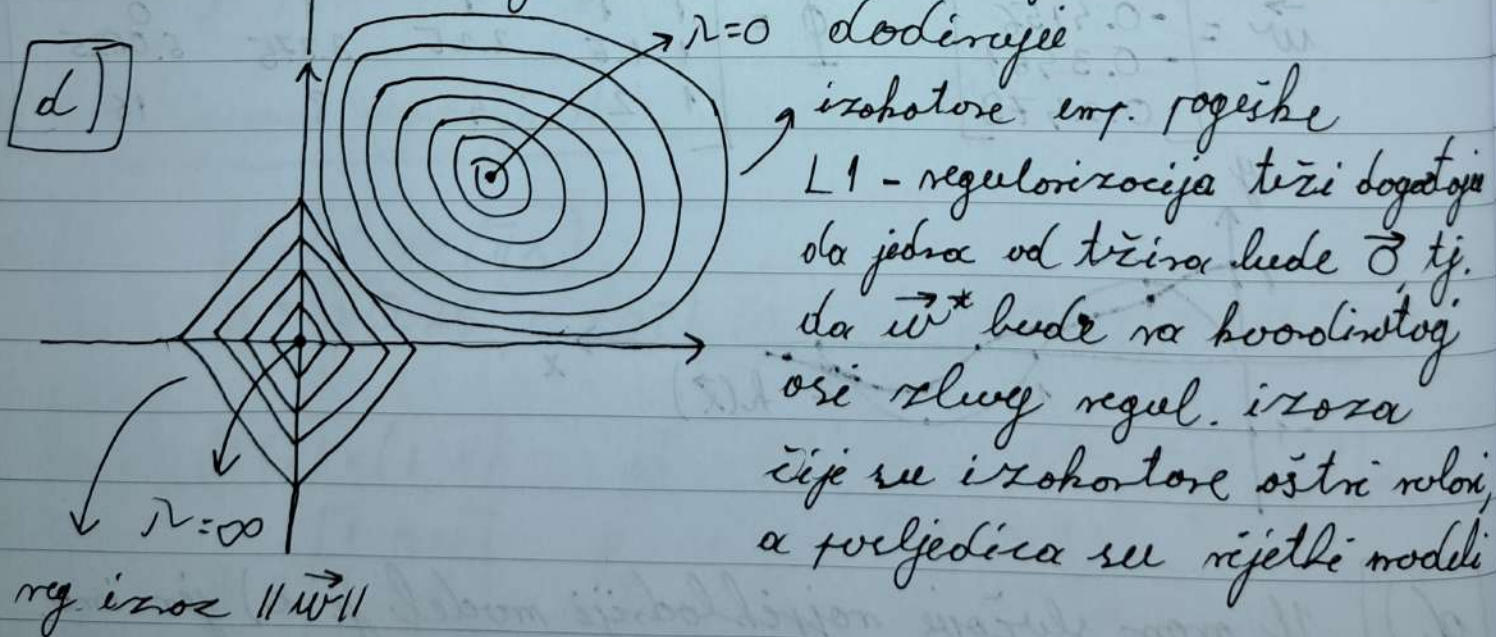 d)
λ=0 dodiruju
izokotore emp. pogeške
L1 - regulorizocija teži događaju
da jedna od težina bude 0, tj.
da w* bude na koordinatnoj
osi zbog regul. izraza
čije su izokonture oštri rubovi,
a posljedica su rijetki modeli
λ=∞
reg izraz ||w||